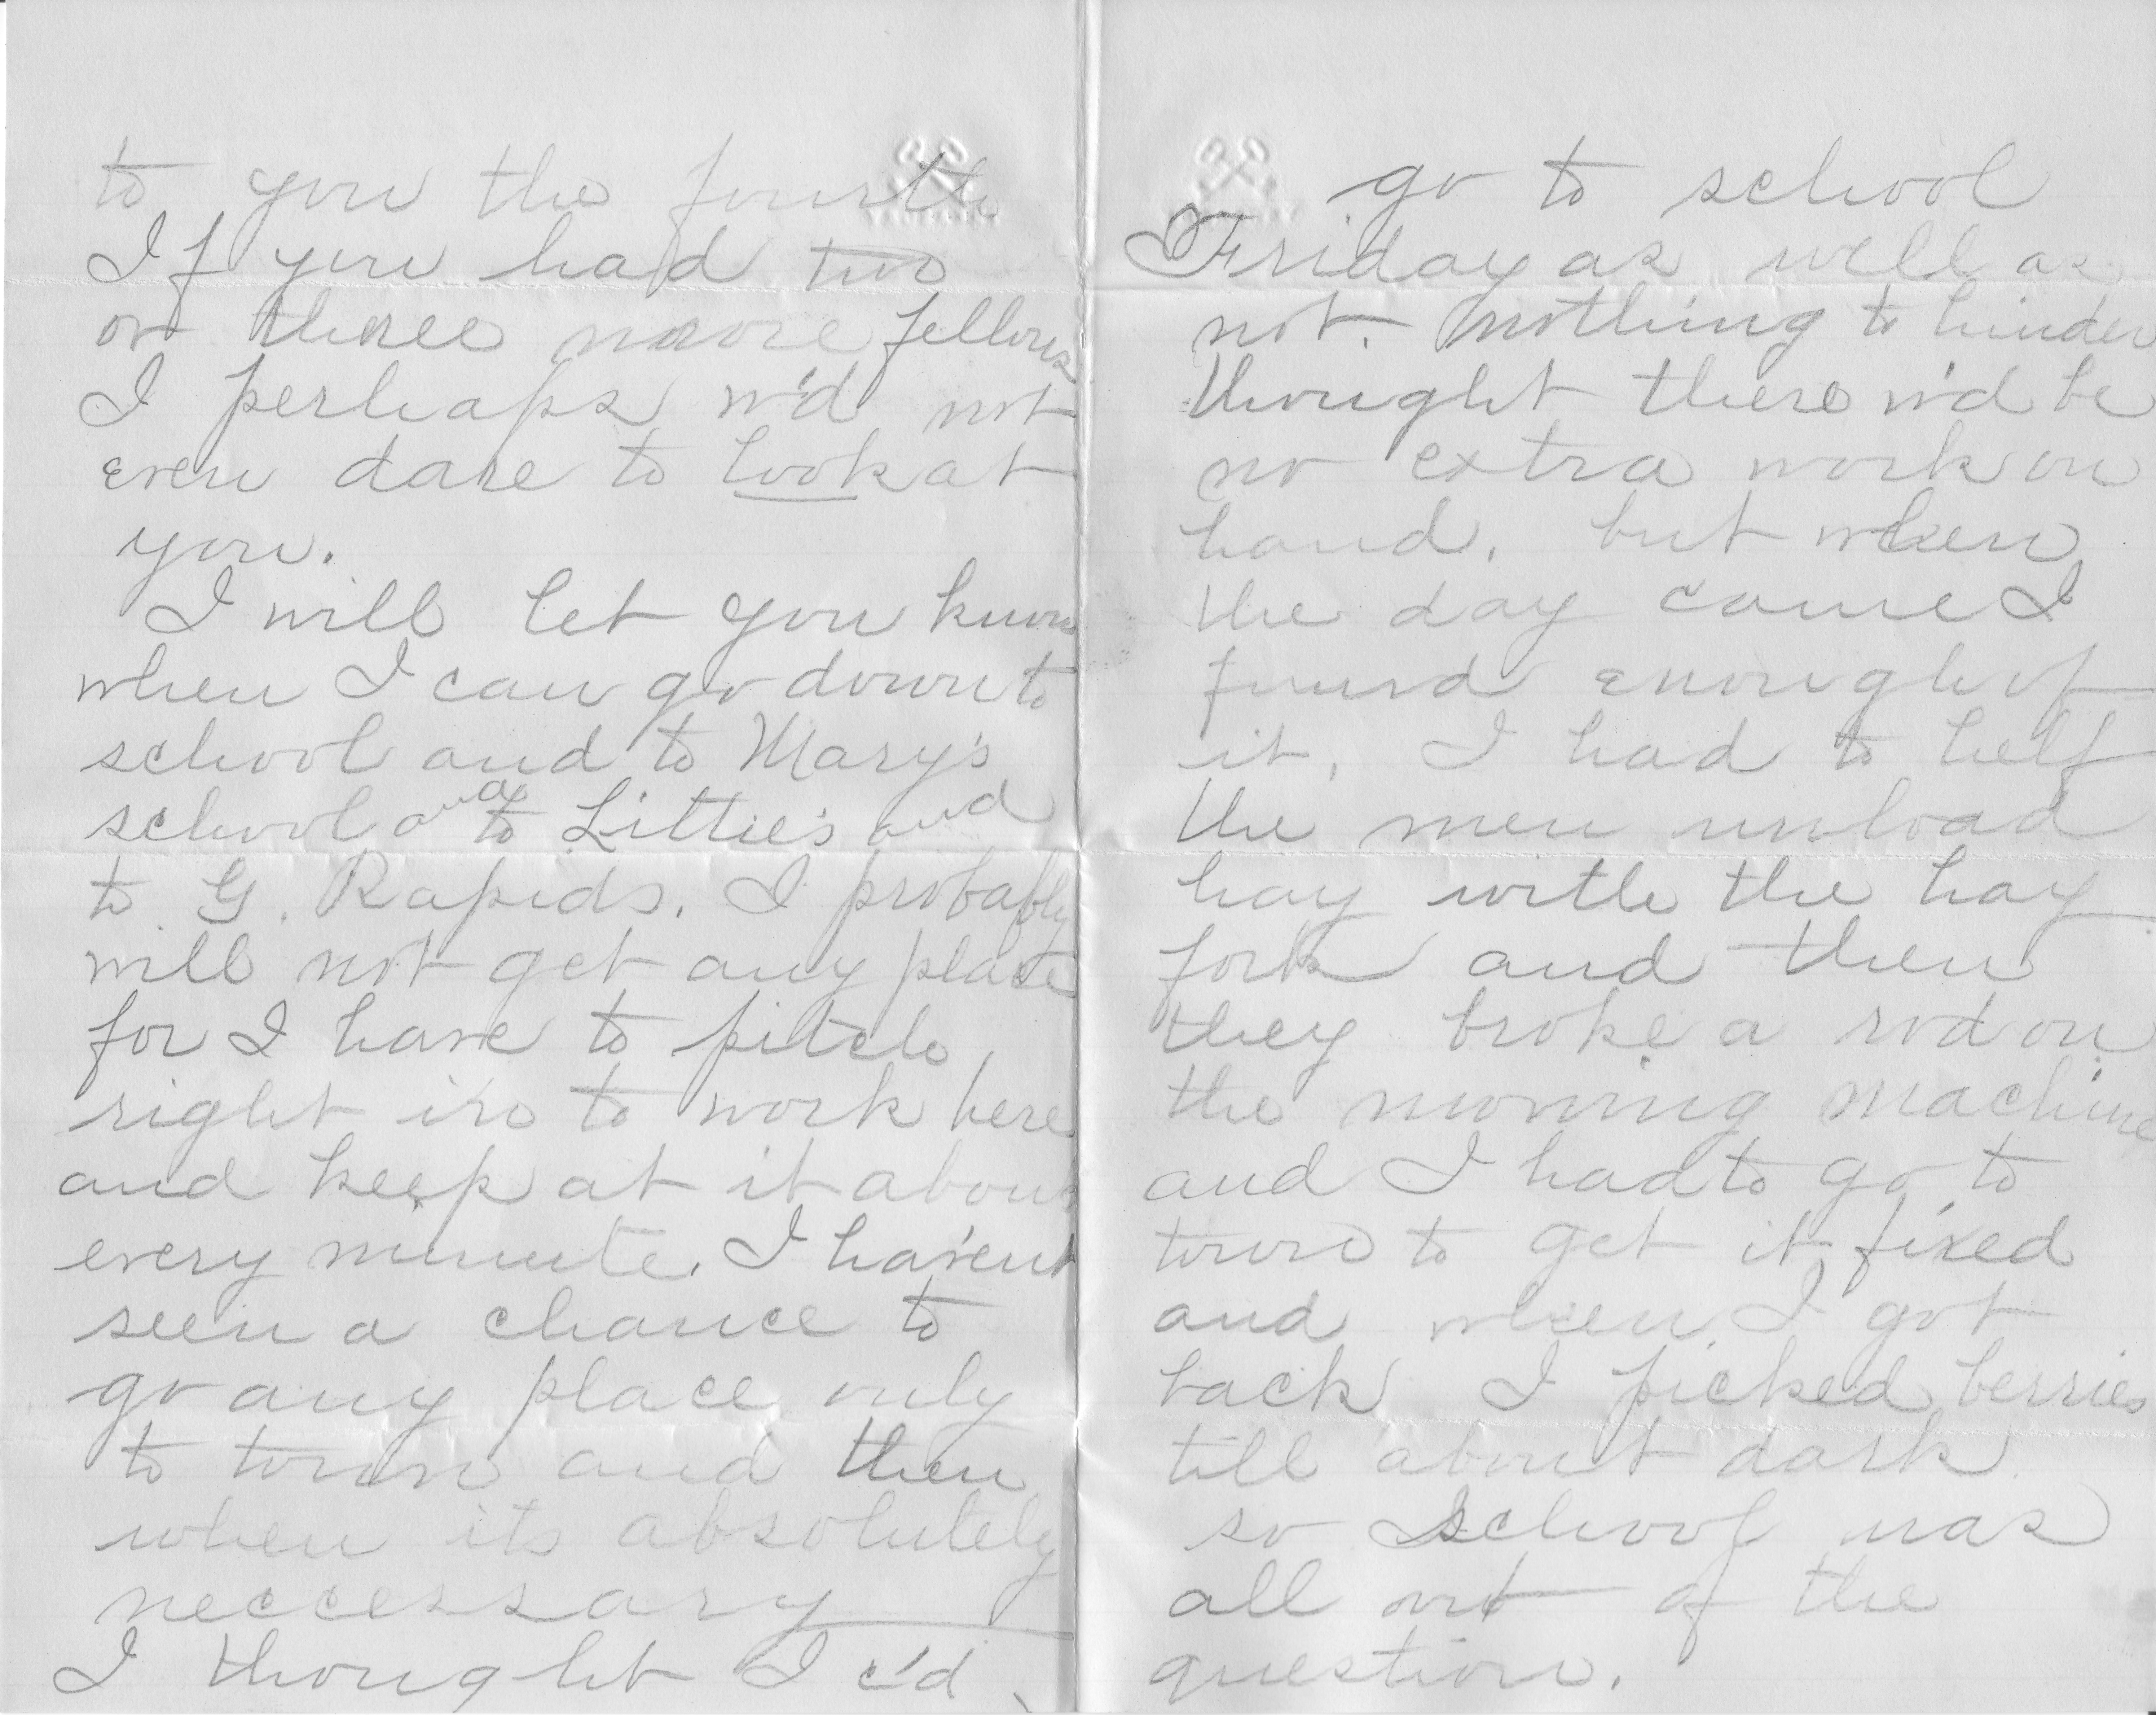 to you the fourth
If you had two
or three more fellows
I perhaps w'd not
even dare to look at
you.
I will let you know
when I can go down to
school and to Mary's
school and to Littie's and
to G. Rapids. I probably
will not get any place
for I have to pitch
right in to work here
and keep at it about
every minute. I haven't
seen a chance to
go any place only
to town and then
when its absolutely
neccessary
I thought I c'd
go to school
Friday as well as
not. nothing to hinder
thought there w'd be
no extra work on
hand. but when
the day came I
found enough of
it. I had to help
the men unload
hay with the hay
fork and then
they broke a rod on
the mowing machine
and I had to go to
town to get it fixed
and when I got
back I picked berries
till about dark
so school was
all out of the
question.